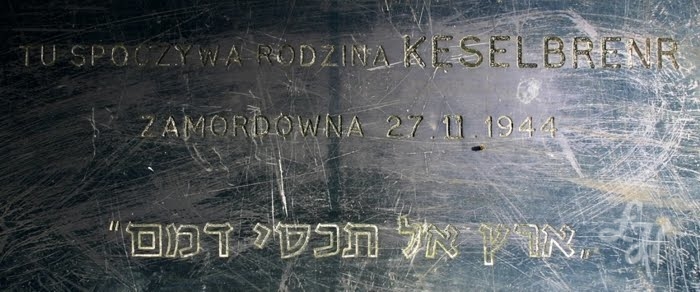 TU SPOCZYWA RODZINA KESELBRENR
ZAMORDOWNA 27.11.1944
„ארץ אל תכסי דמם"